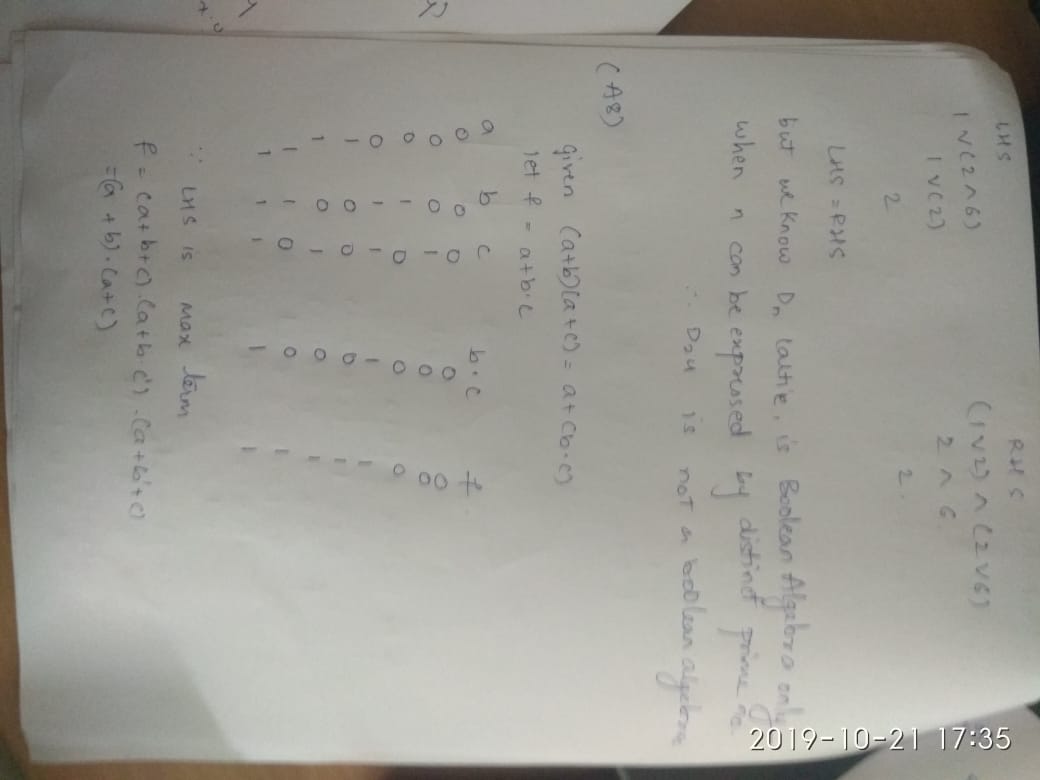 LHS RHS
1 ∨ (2 ∧ 6) (1 ∨ 2) ∧ (2 ∨ 6)
1 ∨ (2) 2 ∧ 6
2 2.
LHS = RHS
but we know Dn lattie, is Boolean Algebra only
when n can be expressed by distinct prime no
∴ D24 is not a boolean algebra
(A8)
given (a+b)(a+c) = a+(b·c)
let f = a+b·c
a b c b·c f
0 0 0 0 0
0 0 1 0 0
0 1 0 0 0
0 1 1 1 1
1 0 0 0 1
1 0 1 0 1
1 1 0 0 1
1 1 1 1 1
∵ LHS is max term
f = (a+b+c).(a+b+c').(a+b'+c)
=(a+b).(a+c)
2019-10-21 17:35